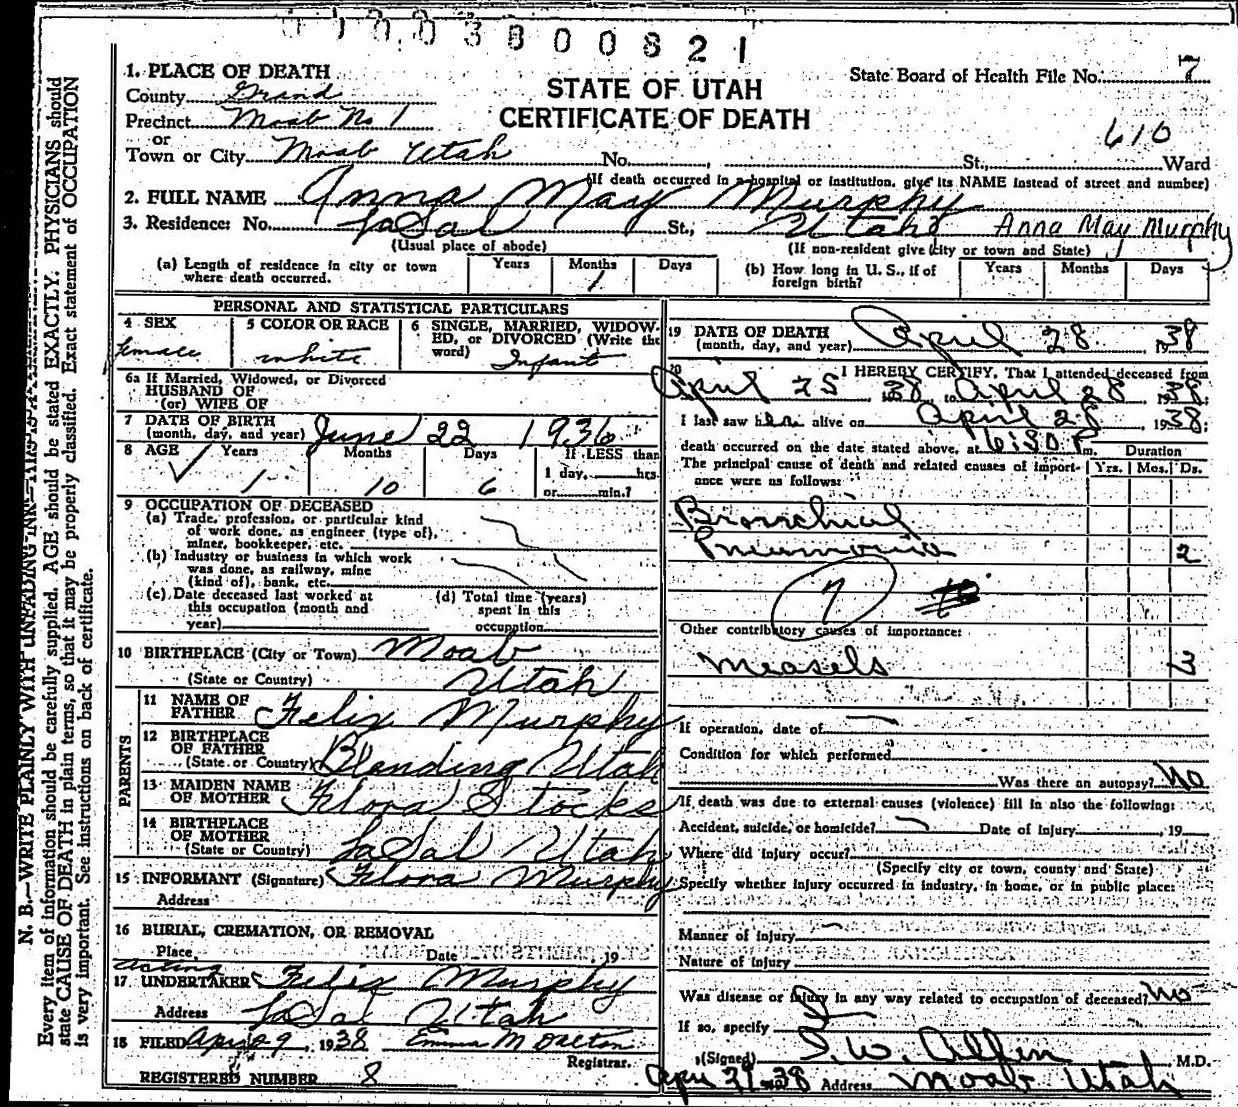 0 1 0 0 3 8 0 0 8 2 1
STATE OF UTAH
CERTIFICATE OF DEATH
State Board of Health File No. 7
610
1. PLACE OF DEATH
County Grand
Precinct Moab No 1
or
Town or City Moab Utah No. , St., Ward
(If death occurred in a hospital or institution, give its NAME instead of street and number)
2. FULL NAME Anna May Murphy
3. Residence: No. LaSal St., Utah Anna May Murphy
(Usual place of abode) (If non-resident give city or town and State)
(a) Length of residence in city or town where death occurred. Years Months 1 Days
(b) How long in U. S., if of foreign birth? Years Months Days
PERSONAL AND STATISTICAL PARTICULARS
4 SEX female
5 COLOR OR RACE white
6 SINGLE, MARRIED, WIDOWED, or DIVORCED (Write the word) Infant
6a If Married, Widowed, or Divorced
HUSBAND OF
(or) WIFE OF
7 DATE OF BIRTH
(month, day, and year) June 22 1936
8 AGE Years 1 Months 10 Days 6 If LESS than 1 day, hrs. or min.?
9 OCCUPATION OF DECEASED
(a) Trade, profession, or particular kind
of work done, as engineer (type of),
miner, bookkeeper, etc.
(b) Industry or business in which work
was done, as railway, mine
(kind of), bank, etc.
(c) Date deceased last worked at
this occupation (month and
year)
(d) Total time (years)
spent in this
occupation
10 BIRTHPLACE (City or Town) Moab
(State or Country) Utah
PARENTS
11 NAME OF FATHER Felix Murphy
12 BIRTHPLACE OF FATHER
(State or Country) Blanding Utah
13 MAIDEN NAME OF MOTHER Flora Stocks
14 BIRTHPLACE OF MOTHER
(State or Country) LaSal Utah
15 INFORMANT (Signature) Flora Murphy
Address
16 BURIAL, CREMATION, OR REMOVAL
Place Date , 19
acting
17 UNDERTAKER Felix Murphy
Address LaSal Utah
18 FILED Apr 29 1938 Emma M Dalton
Registrar.
REGISTERED NUMBER 8
19 DATE OF DEATH
(month, day, and year) April 28, 1938
20 I HEREBY CERTIFY, That I attended deceased from
April 25 1938 to April 28 1938;
I last saw her alive on April 28, 1938;
death occurred on the date stated above, at 6:30 P m. Duration
The principal cause of death and related causes of importance were as follows: Yrs. Mos. Ds.
Bronchial
Pneumonia 2
7
Other contributory causes of importance:
Measels 3
If operation, date of
Condition for which performed
Was there an autopsy? No
If death was due to external causes (violence) fill in also the following:
Accident, suicide, or homicide? Date of injury , 19
Where did injury occur?
(Specify city or town, county and State)
Specify whether injury occurred in industry, in home, or in public place:
Manner of injury
Nature of injury
Was disease or injury in any way related to occupation of deceased? No
If so, specify
(Signed) I. W. Allen M.D.
Apr 29-38 Address Moab Utah
N. B.—WRITE PLAINLY WITH UNFADING INK—THIS IS A PERMANENT
Every item of information should be carefully supplied. AGE should be stated EXACTLY. PHYSICIANS should
state CAUSE OF DEATH in plain terms, so that it may be properly classified. Exact statement of OCCUPATION
is very important. See instructions on back of certificate.